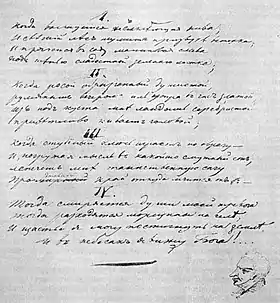 I.
Когда волнуется желтѣющая нива,
И свѣжій лѣсъ шумитъ при звукѣ вѣтерка,
И прячется въ саду малиновая слива
Подъ тѣнью сладостной зеленаго листка;
II
Когда росой обрызганный душистой
Румянымъ вечеромъ иль утра въ часъ златой,
Изъ подъ куста мнѣ ландышъ серебристый
Привѣтливо киваетъ головой;
III
Когда студеный ключъ играетъ по оврагу
И погружая мысль въ какой-то смутный сонъ,
Лепечетъ мнѣ таинственную сагу
Про мирный край откуда мчится онъ
IV
Тогда смиряется души моей тревога
Тогда расходятся морщины на челѣ
И счастье я могу постигнуть на землѣ
И въ небесахъ я вижу Бога!..